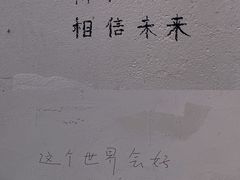 相信未来
这个世界会好